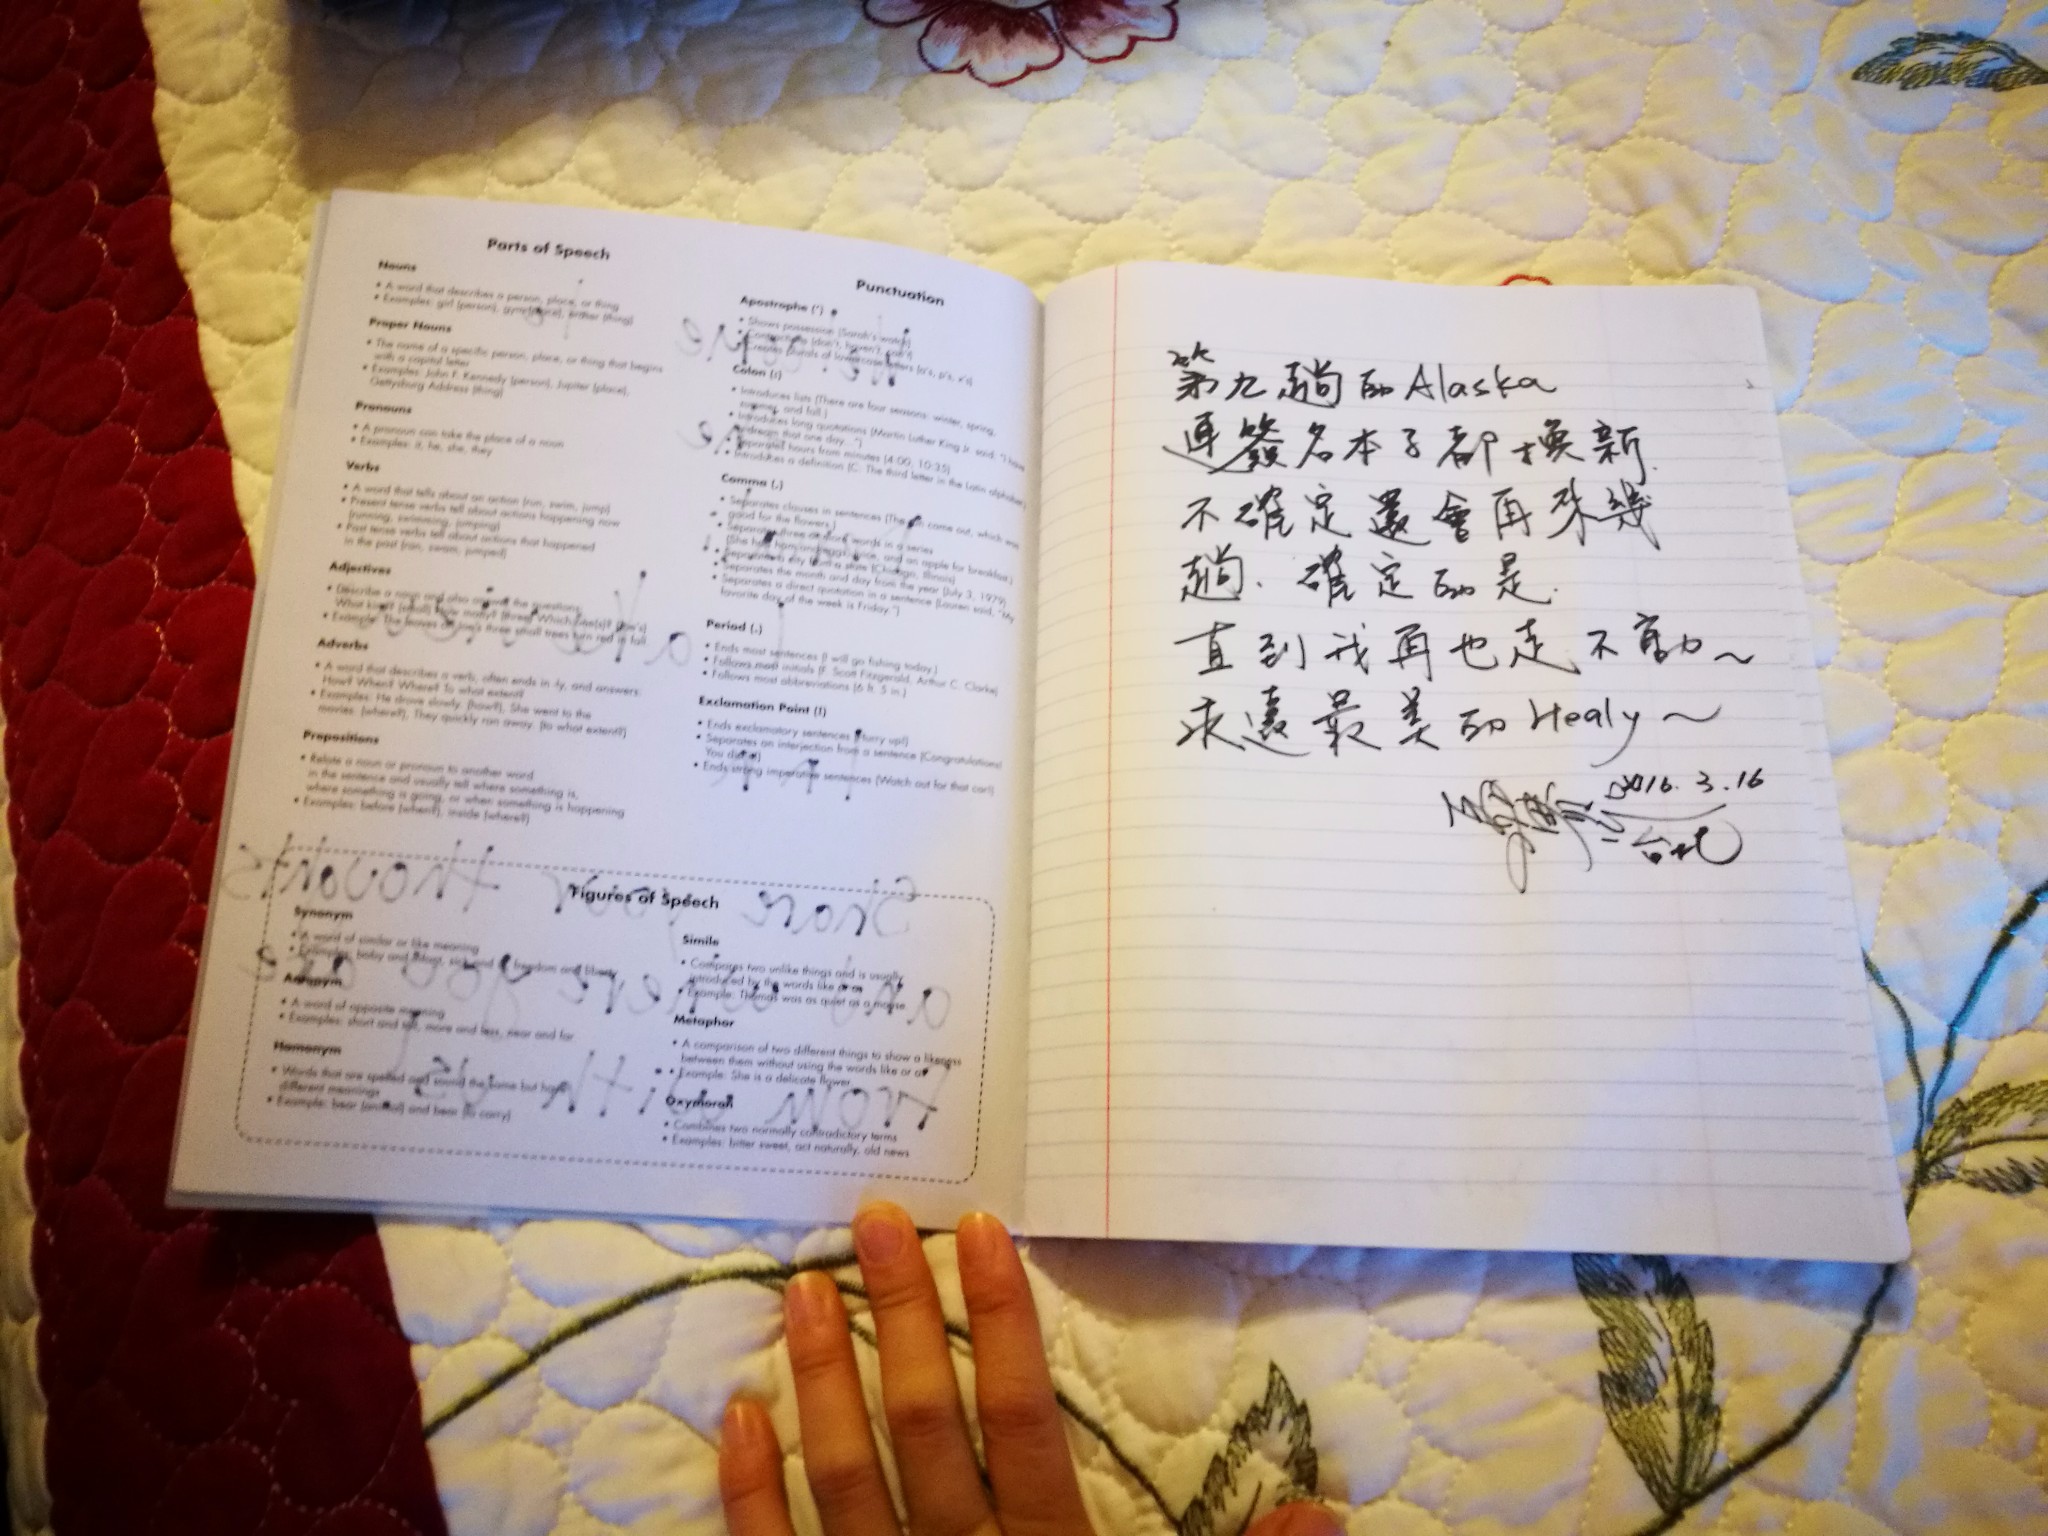 Parts of Speech
Nouns
• A word that describes a person, place, or thing
• Examples: girl (person), gym (place), eraser (thing)
Proper Nouns
• The name of a specific person, place, or thing that begins
with a capital letter
• Examples: John F. Kennedy (person), Jupiter (place),
Gettysburg Address (thing)
Pronouns
• A pronoun can take the place of a noun
• Examples: it, he, she, they
Verbs
• A word that tells about an action (run, swim, jump)
• Present tense verbs tell about actions happening now
(running, swimming, jumping)
• Past tense verbs tell about actions that happened
in the past (ran, swam, jumped)
Adjectives
• Describe a noun and also answer the questions:
What kind? (small) How many? (three) Which one(s)? (Joe's)
• Example: The leaves on Joe's three small trees turn red in fall.
Adverbs
• A word that describes a verb, often ends in -ly, and answers:
How? When? Where? To what extent?
• Examples: He drove slowly. (how?), She went to the
movies. (where?), They quickly ran away. (to what extent?)
Prepositions
• Relate a noun or pronoun to another word
in the sentence and usually tell where something is,
where something is going, or when something is happening
• Examples: before (when?), inside (where?)
Punctuation
Apostrophe (')
• Shows possession (Sarah's watch)
• Contractions (don't, haven't, can't)
• Creates plurals of lowercase letters (a's, p's, x's)
Colon (:)
• Introduces lists (There are four seasons: winter, spring,
summer, and fall.)
• Introduces long quotations (Martin Luther King Jr. said: "I have
a dream that one day...")
• Separates hours from minutes (4:00, 10:35)
• Introduces a definition (C: The third letter in the Latin alphabet)
Comma (,)
• Separates clauses in sentences (The sun came out, which was
good for the flowers.)
• Separates three or more words in a series
(She had ham and eggs, juice, and an apple for breakfast.)
• Separates a city from a state (Chicago, Illinois)
• Separates the month and day from the year (July 3, 1979)
• Separates a direct quotation in a sentence (Lauren said, "My
favorite day of the week is Friday.")
Period (.)
• Ends most sentences (I will go fishing today.)
• Follows most initials (F. Scott Fitzgerald, Arthur C. Clarke)
• Follows most abbreviations (6 ft. 5 in.)
Exclamation Point (!)
• Ends exclamatory sentences (Hurry up!)
• Separates an interjection from a sentence (Congratulations!
You did it!)
• Ends strong imperative sentences (Watch out for that car!)
Figures of Speech
Synonym
• A word of similar or like meaning
• Examples: baby and infant, sick and ill, freedom and liberty
Antonym
• A word of opposite meaning
• Examples: short and tall, more and less, near and far
Homonym
• Words that are spelled and sound the same but have
different meanings
• Example: bear (animal) and bear (to carry)
Simile
• Compares two unlike things and is usually
introduced by the words like or as
• Example: Thomas was as quiet as a mouse.
Metaphor
• A comparison of two different things to show a likeness
between them without using the words like or as
• Example: She is a delicate flower.
Oxymoron
• Combines two normally contradictory terms
• Examples: bitter sweet, act naturally, old news
第九趟的Alaska
連簽名本子都換新.
不確定還會再來幾
趟、確定的是.
直到我再也走不動~
永遠最美的Healy~
2016.3.16
台北